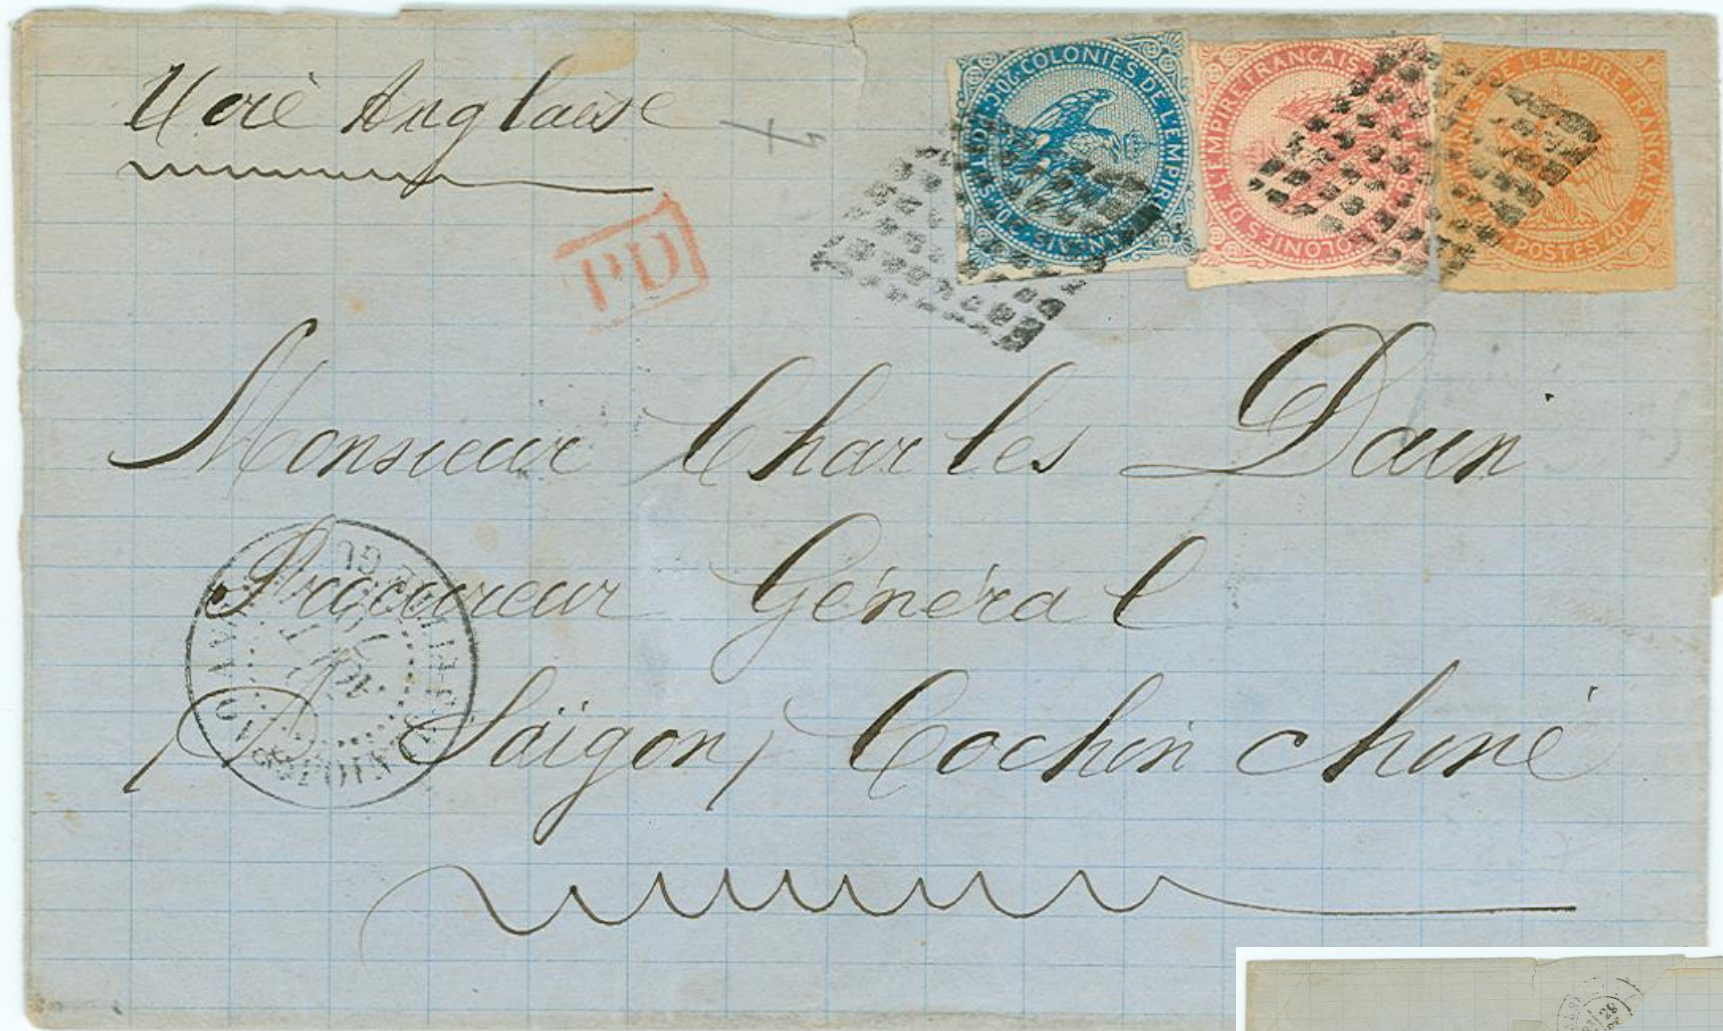 Voie Anglaise
4
PD
20C. COLONIES DE L'EMPIRE FRANÇAIS. POSTES. 20
COLONIES DE L'EMPIRE FRANÇAIS
COLONIES DE L'EMPIRE FRANÇAIS. POSTES. 40
Monsieur Charles Dain
Procureur Général
Saïgon, Cochin chine
29